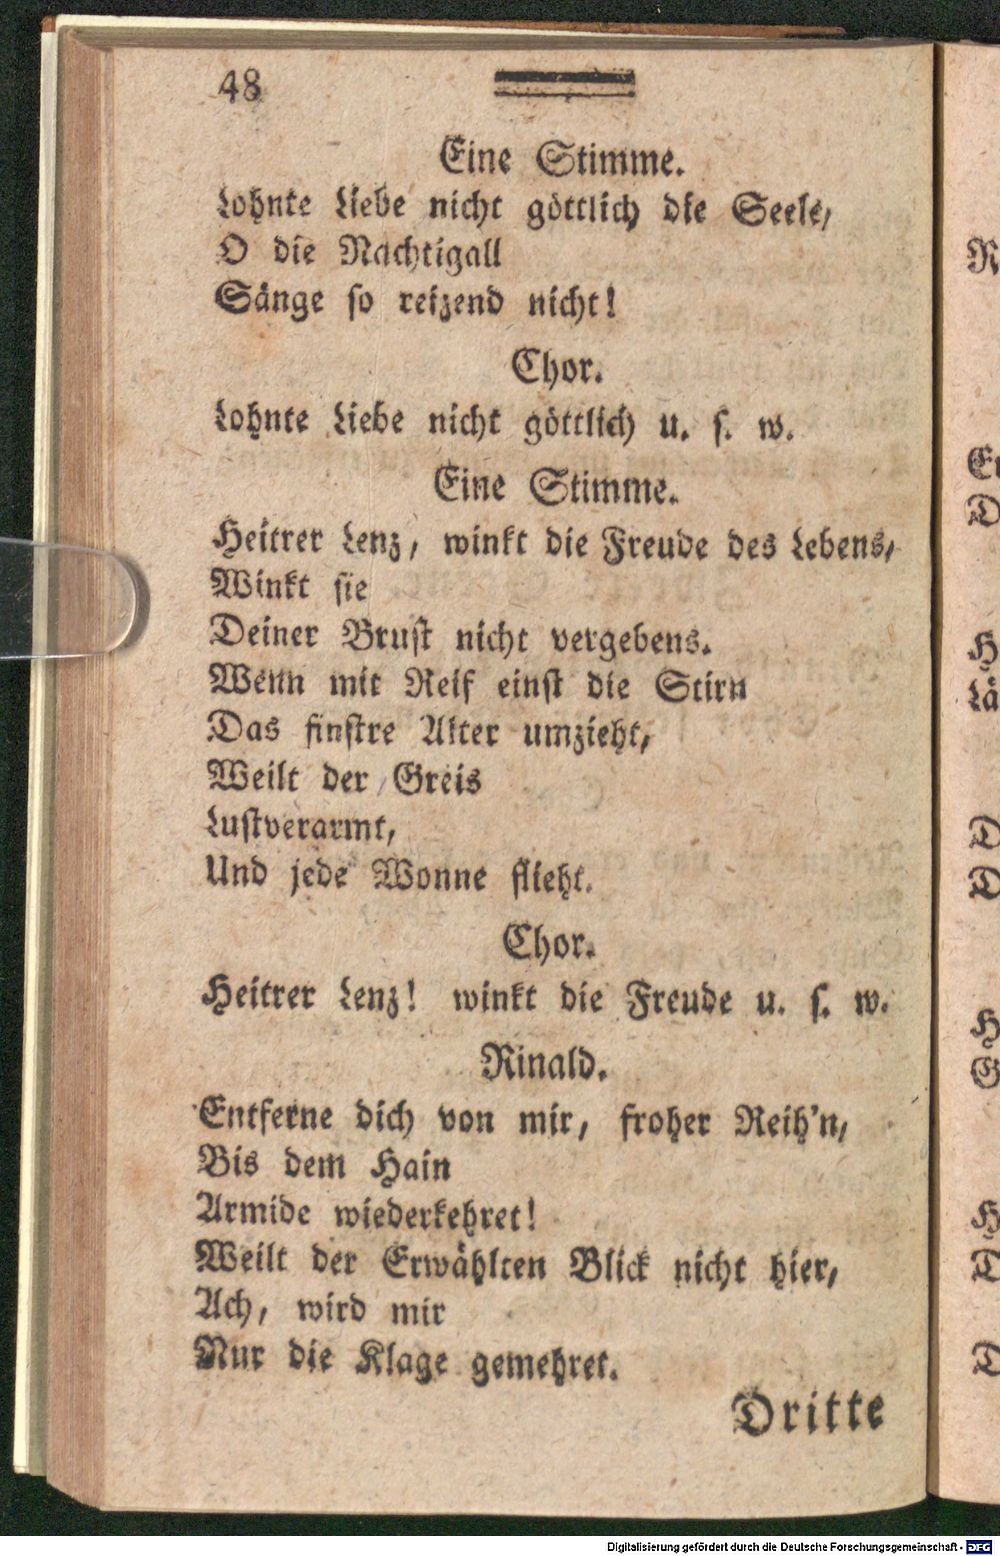 48
Eine Stimme.
Lohnte Liebe nicht göttlich die Seele,
O die Nachtigall
Sänge so reizend nicht!
Chor.
Lohnte Liebe nicht göttlich u. s. w.
Eine Stimme.
Heitrer Lenz, winkt die Freude des Lebens,
Winkt sie
Deiner Brust nicht vergebens.
Wenn mit Reif einst die Stirn
Das finstre Alter umzieht,
Weilt der Greis
Lustverarmt,
Und jede Wonne flieht.
Chor.
Heitrer Lenz! winkt die Freude u. s. w.
Rinald.
Entferne dich von mir, froher Reih'n,
Bis dem Hain
Armide wiederkehret!
Weilt der Erwählten Blick nicht hier,
Ach, wird mir
Nur die Klage gemehret.
Dritte
Digitalisierung gefördert durch die Deutsche Forschungsgemeinschaft - DFG